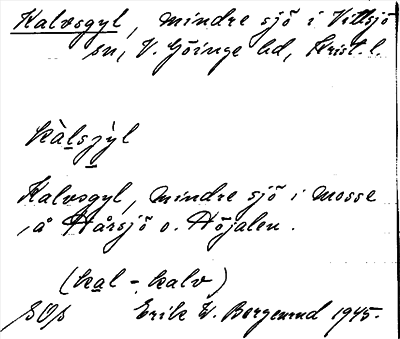 Kalvsgyl, mindre sjö i Vittsjö
sn, V. Göinge hd, Krist. l.
kàlsjyl
Kalvsgyl, mindre sjö i mosse
å Hårsjö o. Höjalen.
(kal - kalv)
SOS Erik W. Bergerud 1945.